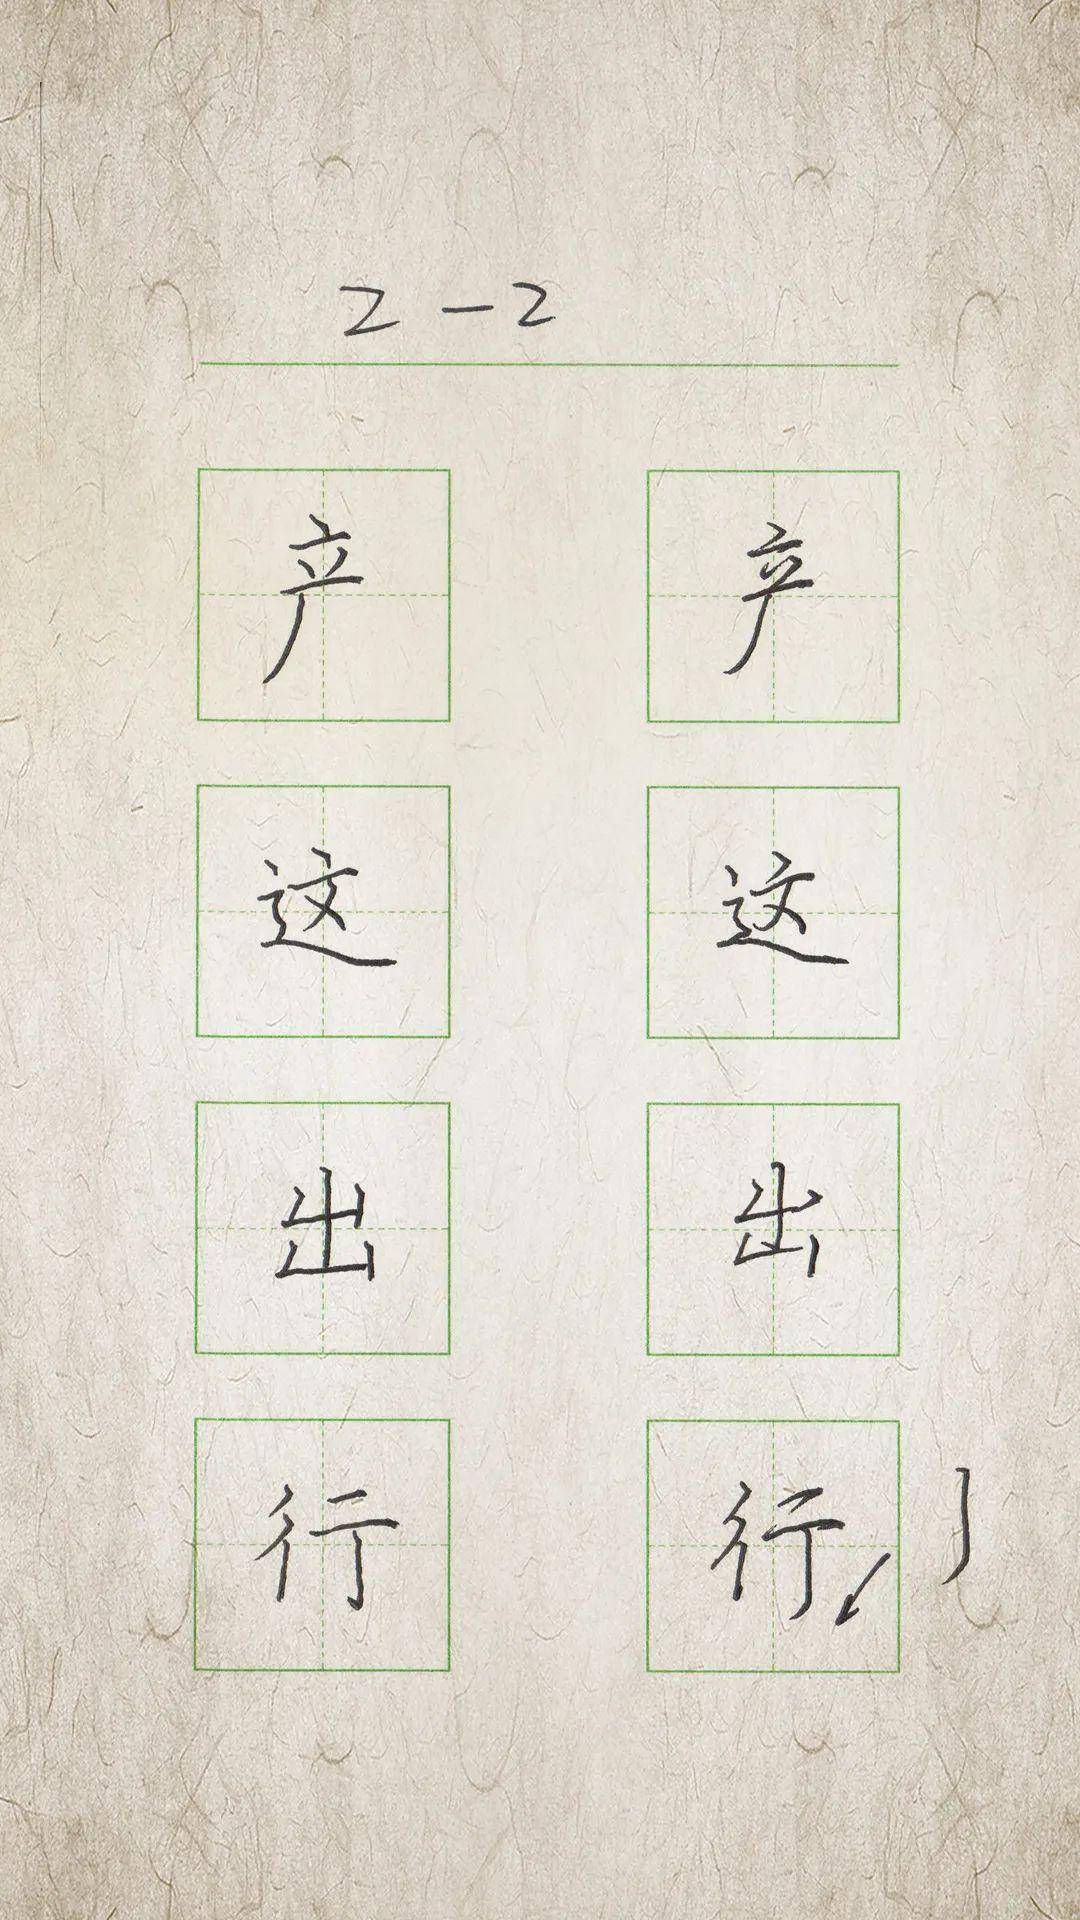 2-2
产 产
这 这
出 出
行 行